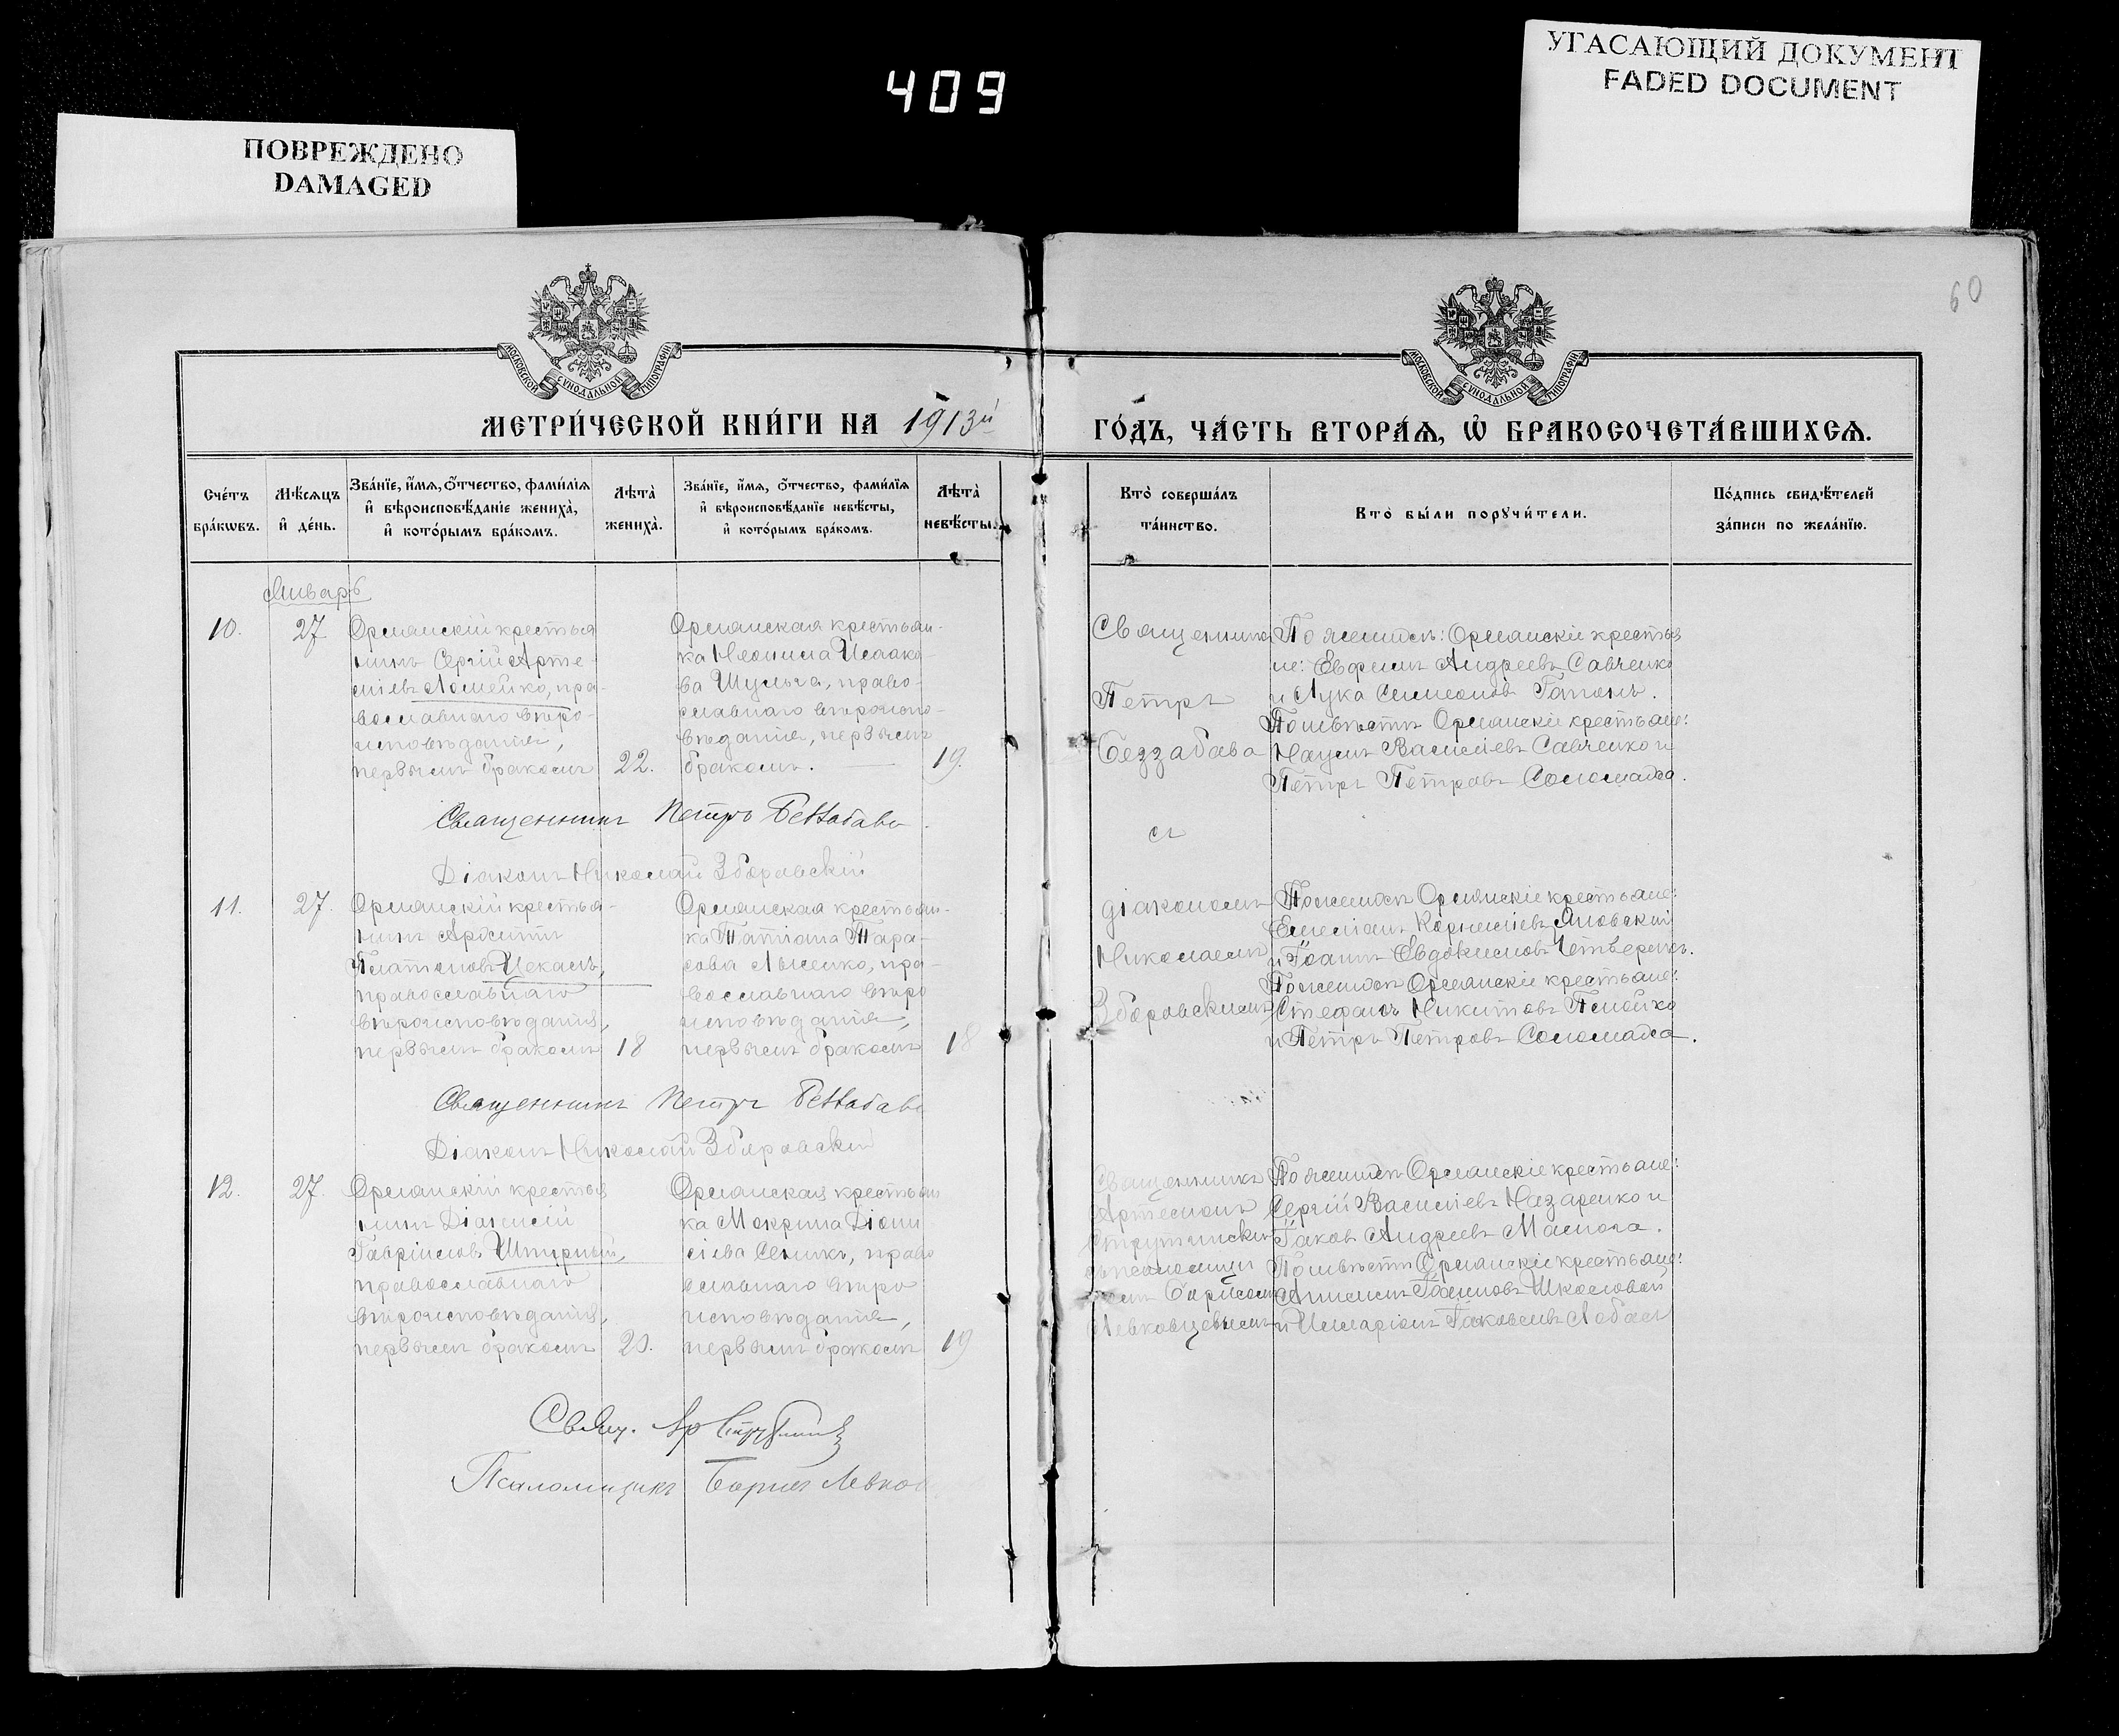 409
УГАСАЮЩИЙ ДОКУМЕНТ
FADED DOCUMENT
ПОВРЕЖДЕНО
DAMAGED
60
МОСКОВСКОЙ СУНОДАЛЬНОЙ ТИПОГРАФІИ
МОСКОВСКОЙ СУНОДАЛЬНОЙ ТИПОГРАФІИ
МЕТРИ́ЧЕСКОЙ КНИ́ГИ НА 1913й
ГО́ДЪ, ЧА́СТЬ ВТОРА́Ѧ, Ѡ҆ БРАКОСОЧЕТА́ВШИХСѦ.
Сче́тъ
бра́кѡвъ.
Мѣ́сѧцъ
и҆ де́нь.
Зва́нїе, и҆́мѧ, ѻ҆́тчество, фами́лїѧ
и҆ вѣроисповѣ́данїе жениха̀,
и҆ кото́рымъ бра́комъ.
Лѣта̀
жениха̀.
Зва́нїе, и҆́мѧ, ѻ҆́тчество, фами́лїѧ
и҆ вѣроисповѣ́данїе невѣ́сты,
и҆ кото́рымъ бра́комъ.
Лѣта̀
невѣ́сты.
Кто̀ соверша́лъ
та́инство.
Кто̀ бы́ли порꙋчи́тели.
По́дпись свидѣ́телей
за́писи по жела́нїю.
Январь
10.
27
Орлянскій крестья
нинъ Сергій Арте-
міевъ Ломейко, пра-
вославнаго вѣро-
исповѣданія,
первымъ бракомъ
22.
Орлянская крестьян-
ка Неонила Исаако-
ва Шульга, право-
славнаго вѣроиспо-
вѣданія, первымъ
бракомъ.
19.
Священникъ
Петръ
Беззабава
съ
діакономъ
Николаемъ
Зборовскимъ
По женихѣ: Орлянскіе крестья
не: Евфимъ Андреевъ Савченко
и Лука Симеоновъ Гапонъ.
По невѣстѣ Орлянскіе крестьяне:
Наумъ Василіевъ Савченко и
Петръ Петровъ Соломаха.
Священникъ Петръ Беззабава.
Діаконъ Николай Зборовскій
11.
27.
Орлянскій крестья-
нинъ
Платоновъ Цекалъ,
православнаго
вѣроисповѣданія,
первымъ бракомъ
18
Орлянская крестьян-
ка Татіана Тара-
сова Лысенко, пра-
вославнаго вѣро
исповѣданія,
первымъ бракомъ
18
По женихѣ Орлянскіе крестьяне:
Емиліанъ Корниліевъ Яновскій
и Іоаннъ Евдокимовъ
По невѣстѣ Орлянскіе крестьяне:
Стефанъ Никитовъ
и Петръ Петровъ Соломаха.
Священникъ Петръ Беззабава
Діаконъ Николай Зборовскій
12.
27.
Орлянскій крестья
нинъ Діонисій
Гавріиловъ Штирный,
православнаго
вѣроисповѣданія,
первымъ бракомъ
20.
Орлянская крестьян
ка Мокрина Діони
сіева Семикъ, право
славнаго вѣро
исповѣданія,
первымъ бракомъ
19
Священникъ
Артемонъ
съ псаломщи
Борисомъ
Левковцевымъ
По женихѣ Орлянскіе крестьяне:
Сергій Василіевъ Назаренко и
Іаковъ Андреевъ Малюга.
По невѣстѣ Орлянскіе крестьяне:
Іоанновъ Школовой
и Иларіонъ Іаковлевъ Лобач
Свящ. Ар
Псаломщикъ Борисъ Левков